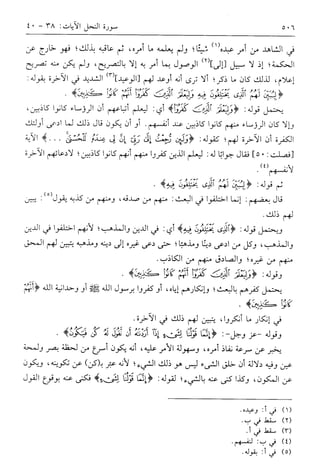 ٥٠٦ سورة النحل الآيات: ٣٨ - ٤٠
في الشاهد من أمر عبده(١) شيئًا؛ ولم يعلمه ما أمره، ثم عاقبه بذلك؛ فهو خارج عن
الحكمة؛ إذ لا سبيل [إلى](٢) الوصول بما أمر به إلا بالتصريح، ولم يكن منه تصريح
إعلام، لذلك كان ما ذكر؛ ألا ترى أنه أوعد لهم [الوعيد](٣) الشديد في الآخرة بقوله:
﴿لِيُبَيِّنَ لَهُمُ الَّذِي يَخْتَلِفُونَ فِيهِ وَلِيَعْلَمَ الَّذِينَ كَفَرُوا أَنَّهُمْ كَانُوا كَاذِبِينَ﴾.
يحتمل قوله: ﴿وَلِيَعْلَمَ الَّذِينَ كَفَرُوا﴾ أي: ليعلم أتباعهم أن الرؤساء كانوا كاذبين،
وإلا كان الرؤساء منهم كانوا كاذبين عند أنفسهم. أو أن يكون قال ذلك لما ادعى أولئك
الكفرة أن الآخرة لهم؛ كقوله: ﴿وَلَئِن رُّجِعْتُ إِلَى رَبِّي إِنَّ لِي عِندَهُ لَلْحُسْنَى ...﴾ الآية
[فصلت: ٥٠] فقال جوابًا له: ليعلم الذين كفروا منهم أنهم كانوا كاذبين؛ لادعائهم الآخرة
لأنفسهم(٤).
ثم قوله: ﴿لِيُبَيِّنَ لَهُمُ الَّذِي يَخْتَلِفُونَ فِيهِ﴾.
قال بعضهم: إنما اختلفوا في البعث: منهم من صدقه، ومنهم من كذبه يقول(٥): يبين
لهم ذلك.
ويحتمل قوله: ﴿الَّذِي يَخْتَلِفُونَ فِيهِ﴾ أي: في الدين والمذهب؛ لأنهم اختلفوا في الدين
والمذهب، وكل من ادعى دينًا ومذهبًا؛ حتى دعى غيره إلى دينه ومذهبه يتبين لهم المحق
منهم من غيره؛ والصادق منهم من الكاذب.
وقوله: ﴿وَلِيَعْلَمَ الَّذِينَ كَفَرُوا أَنَّهُمْ كَانُوا كَاذِبِينَ﴾.
يحتمل كفرهم بالبعث؛ وإنكارهم إياه، أو كفروا برسول الله ﷺ أو وحدانية الله ﴿أَنَّهُمْ
كَانُوا كَاذِبِينَ﴾.
في إنكار ما أنكروا، يتبين لهم ذلك في الآخرة.
وقوله -عز وجل-: ﴿إِنَّمَا قَوْلُنَا لِشَيْءٍ إِذَا أَرَدْنَاهُ أَن نَّقُولَ لَهُ كُن فَيَكُونُ﴾.
يخبر عن سرعة نفاذ أمره، وسهولة الأمر عليه، أنه يكون أسرع من لحظة بصر ولمحة
عين وفيه دلالة أن خلق الشيء ليس هو ذلك الشيء؛ لأنه عبر بـ(كن) عن تكوينه، ويكون
عن المكون، وكذا كنى عنه بالشيء؛ لقوله: ﴿إِنَّمَا قَوْلُنَا لِشَيْءٍ﴾ فكنى عنه بوقوع القول
(١) في أ: وعيده.
(٢) سقط في ب.
(٣) سقط في أ.
(٤) في ب: لنفسهم.
(٥) في أ: بقوله.